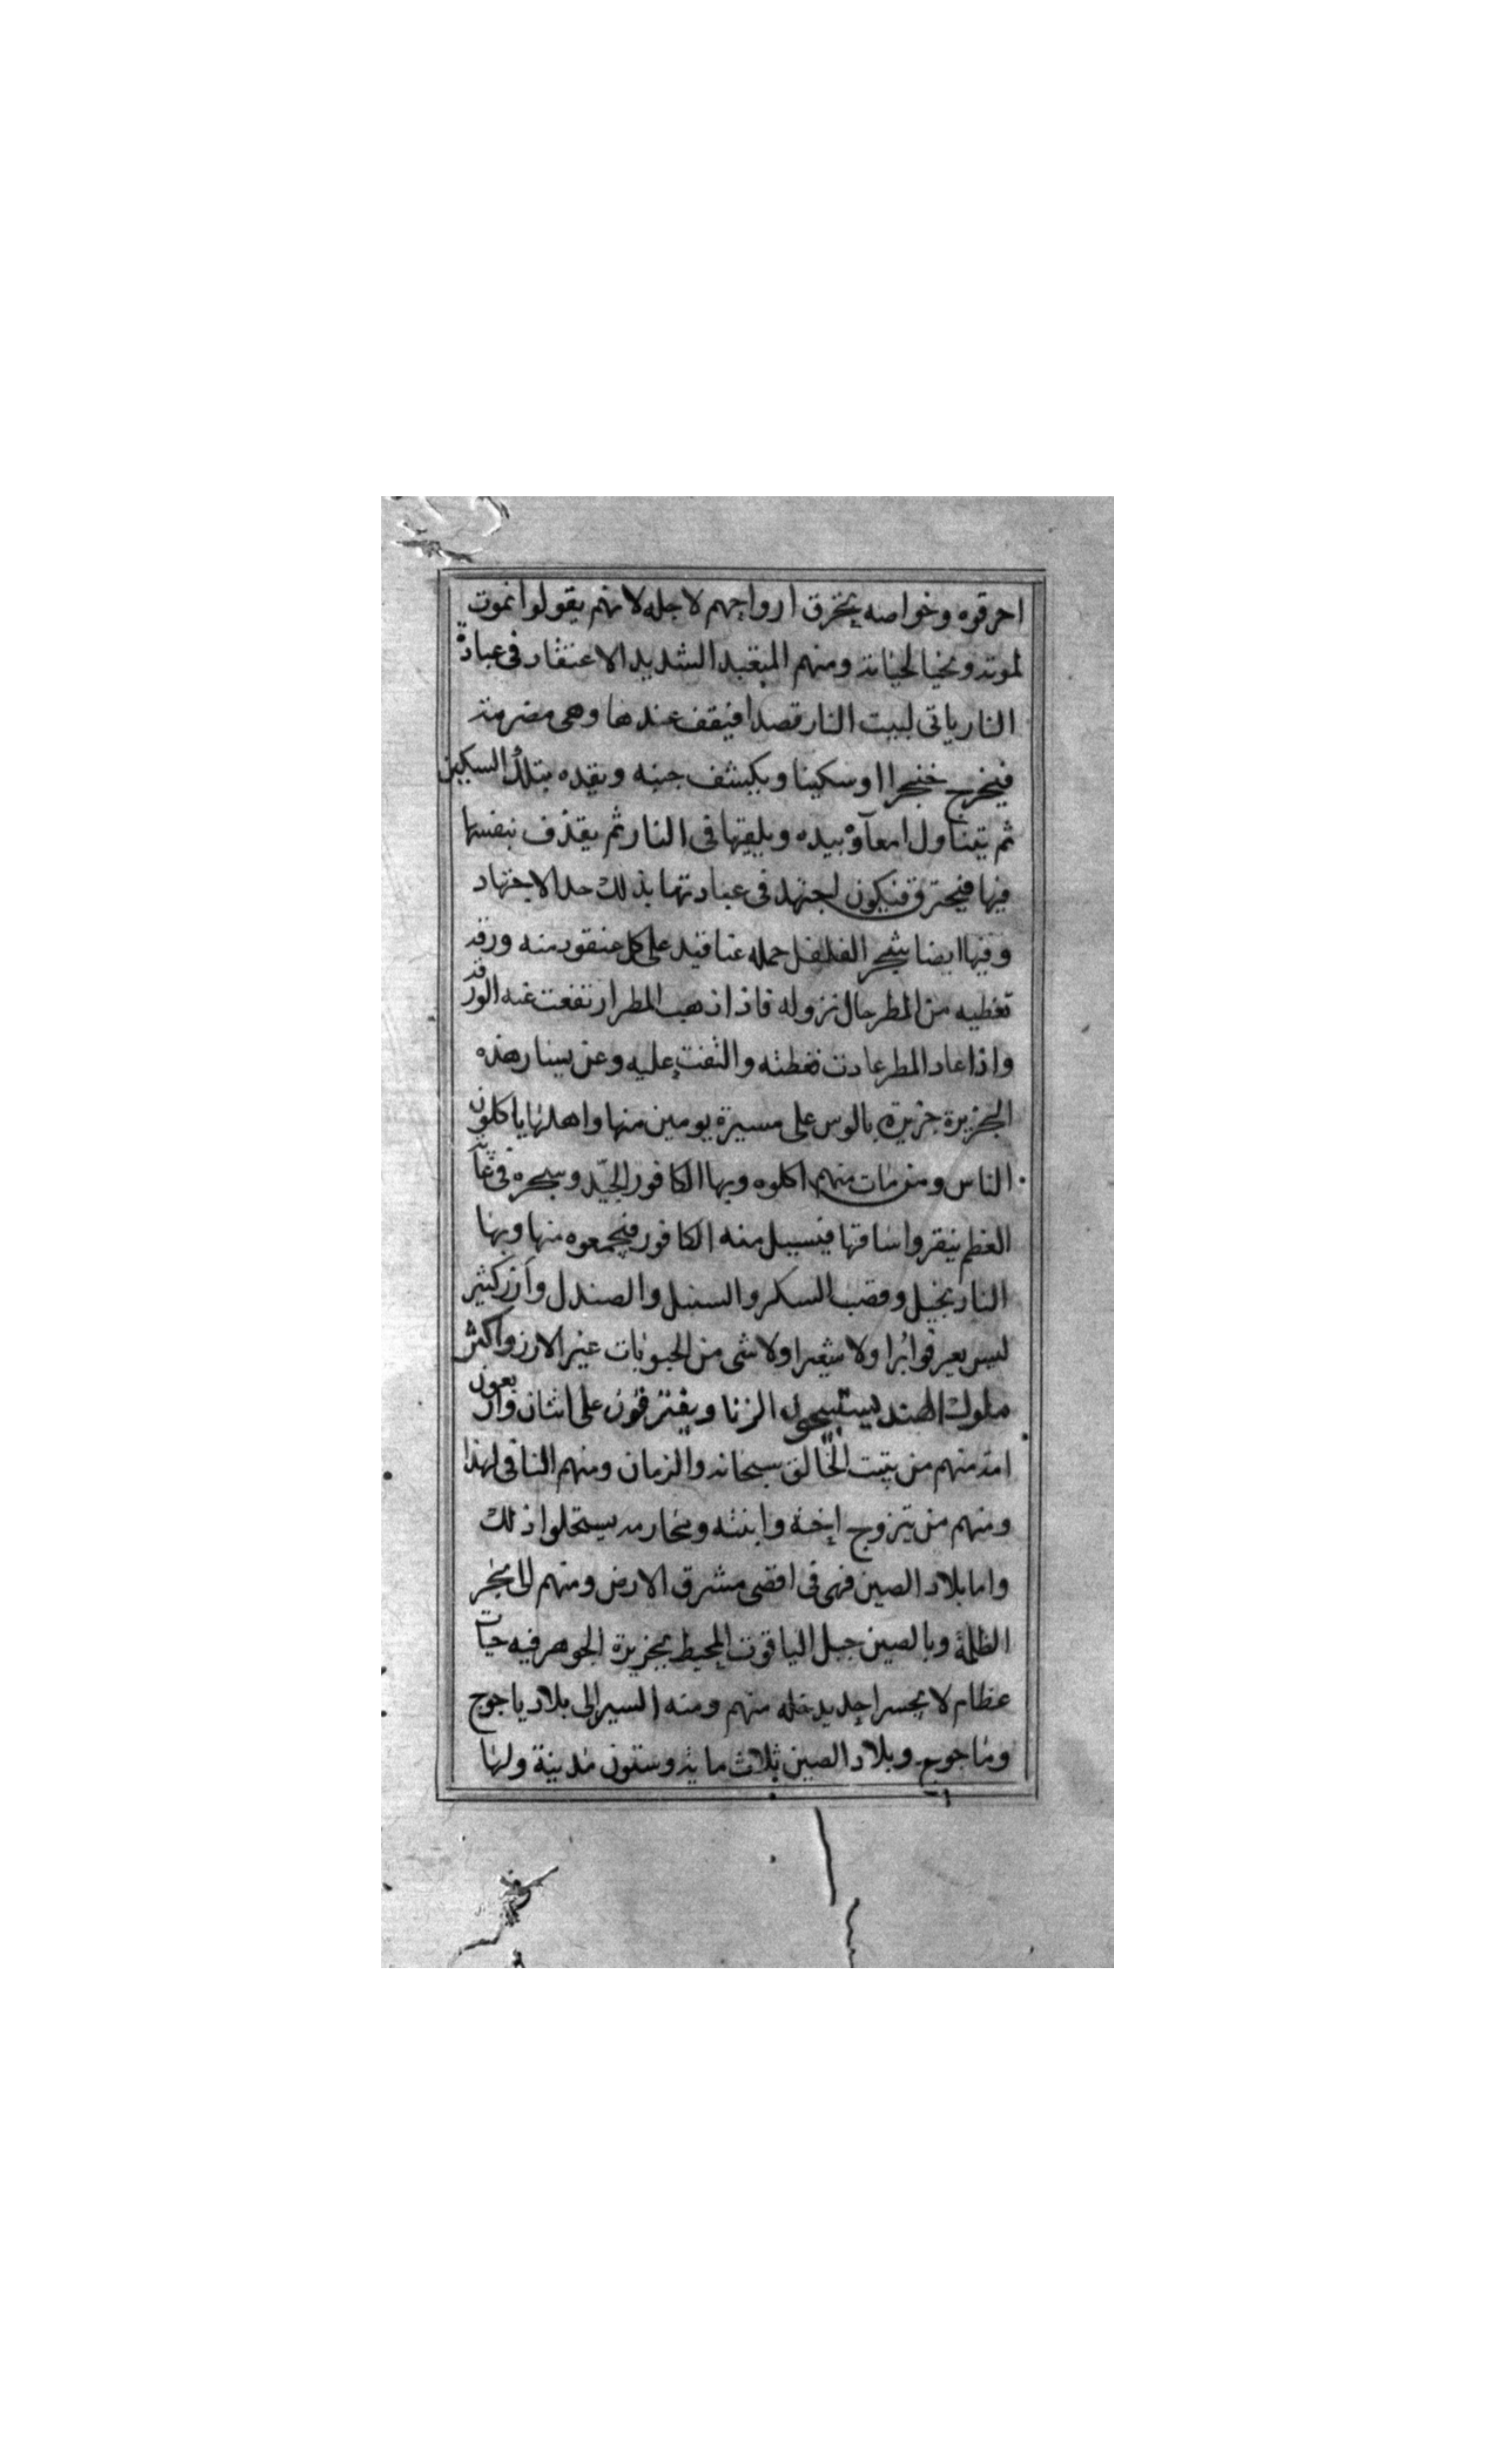 احرقوه وخواصه يحرق ارواحهم لاجله لانهم يقولوا نموت
لموته ونحيا لحياته ومنهم المتعبد الشديد الاعتقاد في عبادة
النار ياتى لبيت النار قصدا فيقف عندها وهى مضرمة
فيخرج خنجرا اوسكينا ويكشف جنبه ويقده بتلك السكين
ثم يتناول امعآؤه بيده ويلقيها فى النار ثم يقذف بنفسها
فيها فيحترق فيكون اجتهد فى عبادتها بذلك حد الاجتهاد
وفيها ايضا شجر الفلفل حمله عناقيد على كل عنقود منه ورقه
تغطيه من المطر حال نزوله فاذا ذهب المطر ارتفعت عنه الورقه
واذا عاد المطر عادت تغطته والتفت عليه وعن يسار هذه
الجزيرة جزيرة بالوس على مسيرة يومين منها واهلها ياكلون
الناس ومن مات منهم اكلوه وبها الكافور الجيّد وشجره فى غاية
العظم ينقروا ساقها فيسيل منه الكافور فيجمعوه منها وبها
النارجيل وقصب السكر والسنبل والصندل وارز كثير
ليس يعرفوا برا ولا شعيرا ولا شى من الحبوبات غير الارز واكثر
ملوك الهند يستبيحون الزنا ويفترقون على اثنان واربعون
امة منهم من يثبت الخالق سبحانه والزمان ومنهم النافى لهذا
ومنهم من يتزوج اخته وابنته ومحارمه يستحلوا ذلك
واما بلاد الصين فهى فى اقصى مشرق الارض ومنهم الى بحر
الظلمة وبالصين جبل الياقوت المحيط بجزيرة الجوهر فيه حيات
عظام لا يجسر احد يدخله منهم ومنه السير الى بلاد ياجوج
وماجوج وبلاد الصين ثلاث ماية وستون مدينة ولها